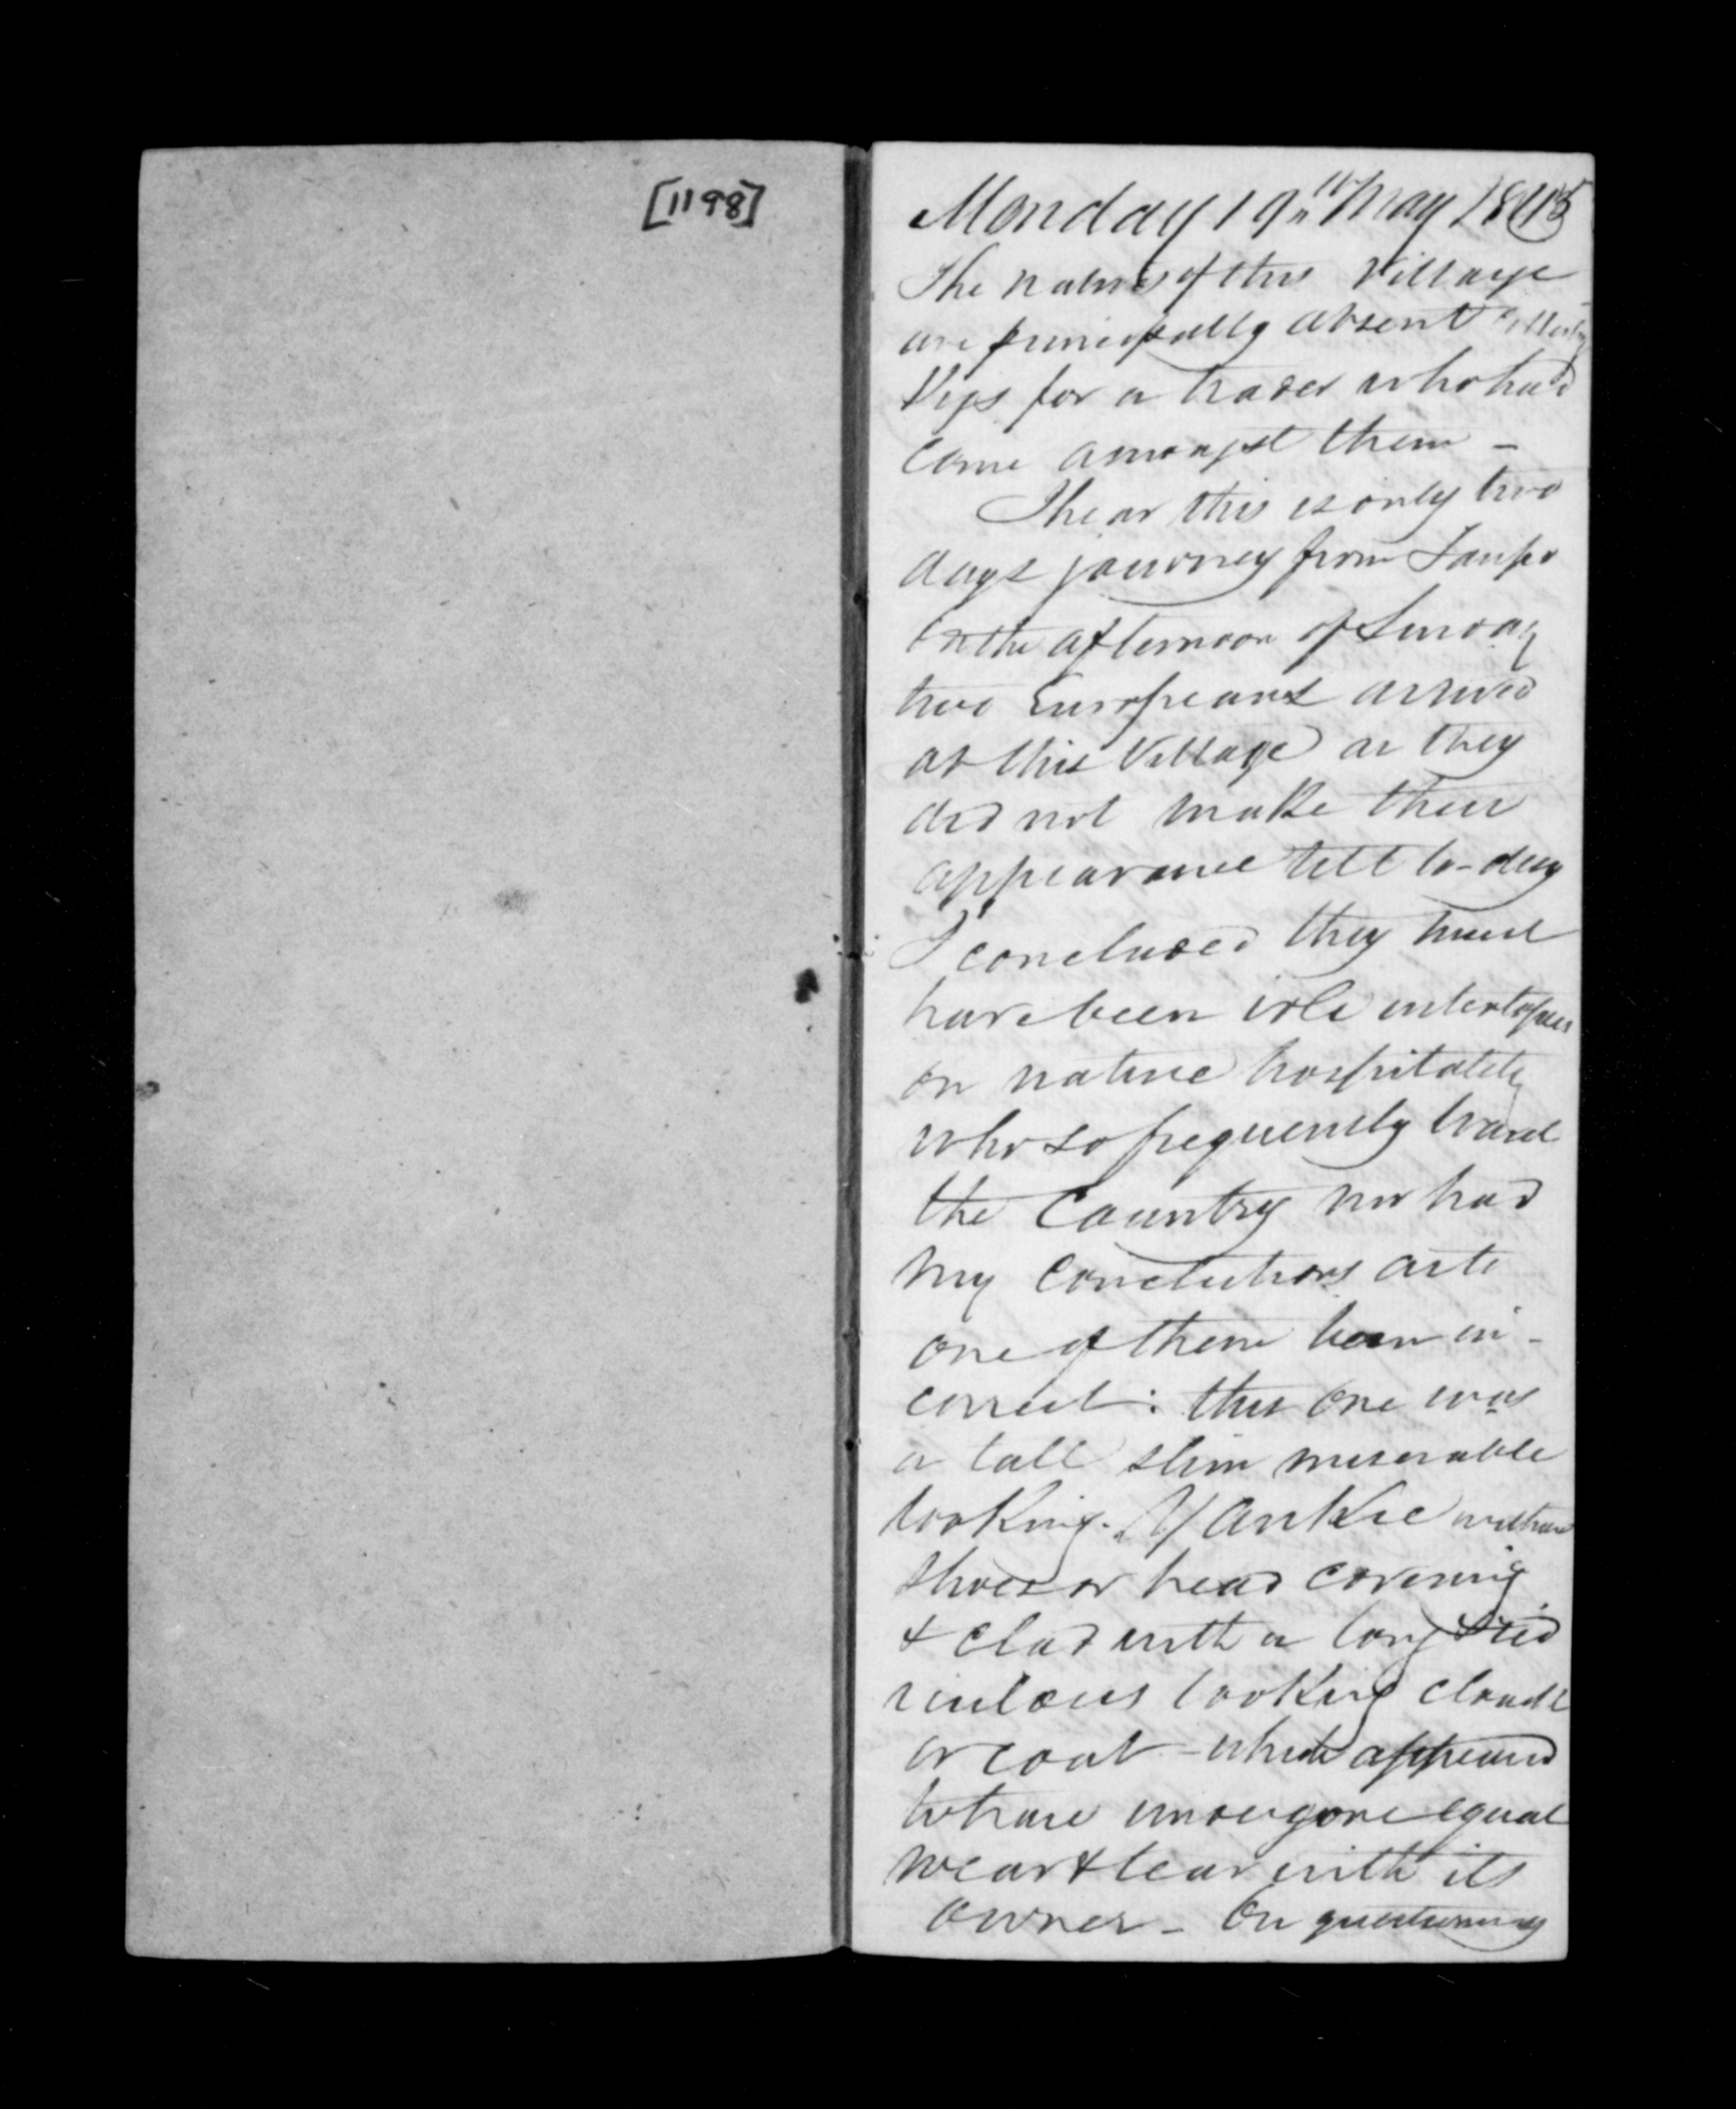 [1198]
Monday 19th May 1845
The natives of this Village
are principally absent
Pigs for a trader who had
come amongst them -
I hear this is only two
days journey from Taupo
On the afternoon of Sunday
two Europeans arrived
at this Village as they
did not make their
appearance till to-day
I concluded they must
have been idle interlopers
on native hospitality
who so frequently travel
the Country nor had
my Conclutions as to
one of them been in-
correct: this one was
a tall slim miserable
looking Yankee without
shoes or head covering
& clad with a long
looking
or coat - which appeared
to have undergone equal
wear & tear with its
owner - On questioning